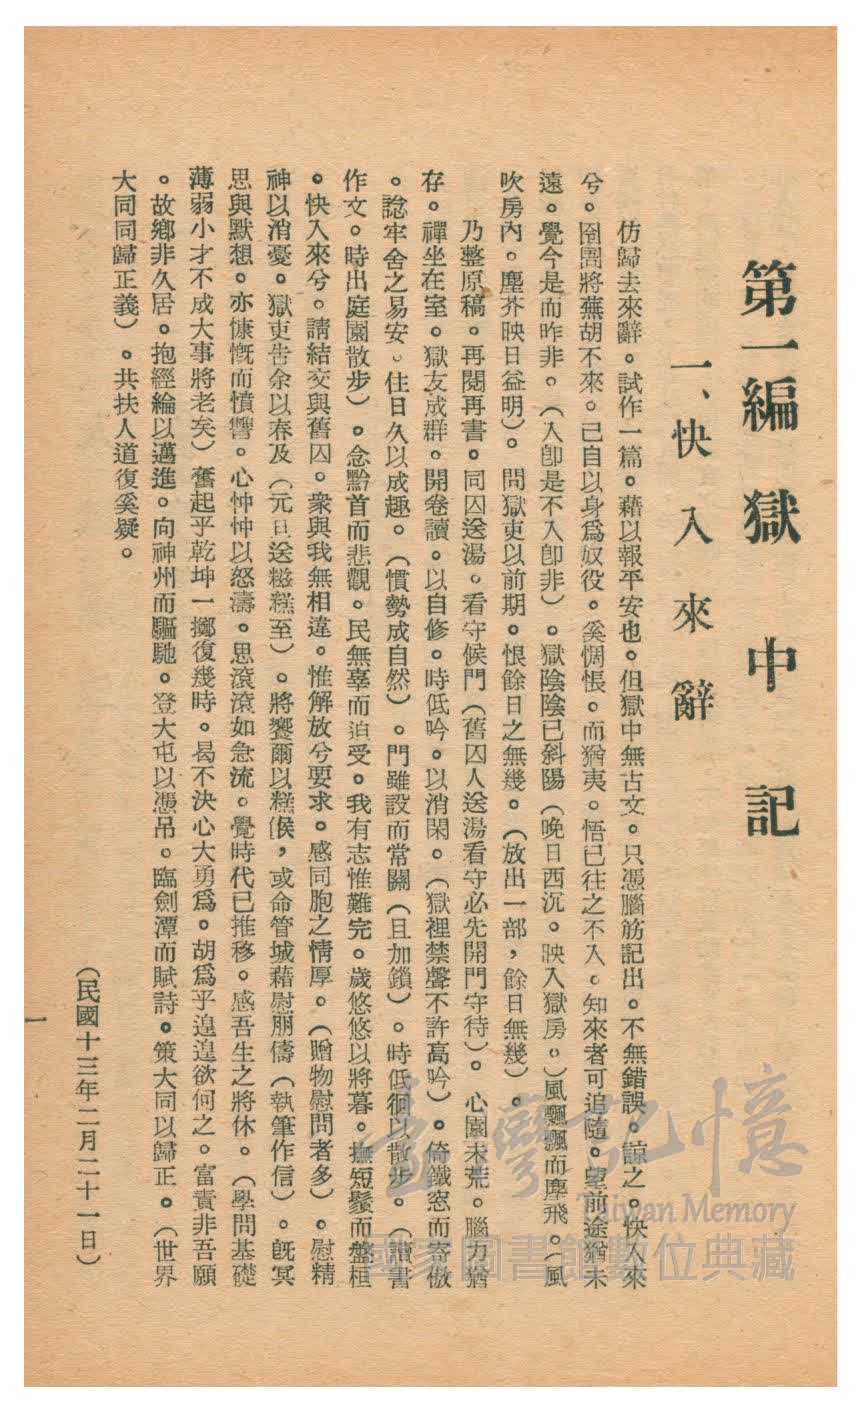 第一編　獄中記
一、快入來辭
仿歸去來辭。試作一篇。藉以報平安也。但獄中無古文。只憑腦筋記出。不無錯誤。諒之。快入來
兮。囹圄將蕪胡不來。己自以身爲奴役。奚惆悵。而猶夷。悟已往之不入。知來者可追隨。望前途猶未
遠。覺今是而昨非。（入卽是不入卽非）。獄陰陰已斜陽（晚日西沉。映入獄房。）風飄飄而塵飛。（風
吹房內。塵芥映日益明）。問獄吏以前期。恨餘日之無幾。（放出一部，餘日無幾）。
乃整原稿。再閱再書。同囚送湯。看守候門（舊囚人送湯看守必先開門守待）。心園未荒。腦力猶
存。禪坐在室。獄友成群。開卷讀。以自修。時低吟。以消閑。（獄裡禁聲不許高吟）。倚鐵窓而寄傲
。諗牢舍之易安。住日久以成趣。（慣勢成自然）。門雖設而常關（且加鎖）。時低徊以散步。（讀書
作文。時出庭園散步）。念黔首而悲觀。民無辜而迫受。我有志惟難完。歲悠悠以將暮。撫短鬚而盤桓
。快入來兮。請結交與舊囚。衆與我無相違。惟解放兮要求。感同胞之情厚。（贈物慰問者多）。慰精
神以消憂。獄吏告余以春及（元旦送糍糕至）。將饗爾以糕餱，或命管城藉慰朋儔（執筆作信）。旣冥
思與默想。亦慷慨而憤響。心忡忡以怒濤。思滾滾如急流。覺時代已推移。感吾生之將休。（學問基礎
薄弱小才不成大事將老矣）奮起乎乾坤一擲復幾時。曷不決心大勇爲。胡爲乎遑遑欲何之。富貴非吾願
。故鄉非久居。抱經綸以邁進。向神州而驅馳。登大屯以憑吊。臨劍潭而賦詩。策大同以歸正。（世界
大同同歸正義）。共扶人道復奚疑。
（民國十三年二月二十一日）
一
臺灣記憶
Taiwan Memory
國家圖書館數位典藏